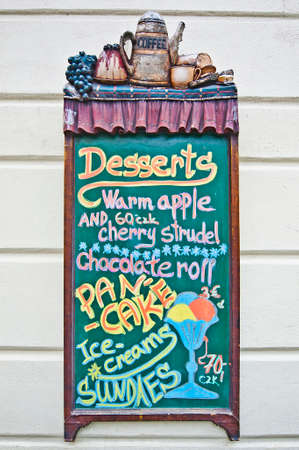 COFFEE
Desserts
Warm apple
AND, 60 CZK
cherry strudel
Chocolate roll
PAN-E
-CAKE
3€
Ice-
-creams
70,-
CZK
SUNDAES